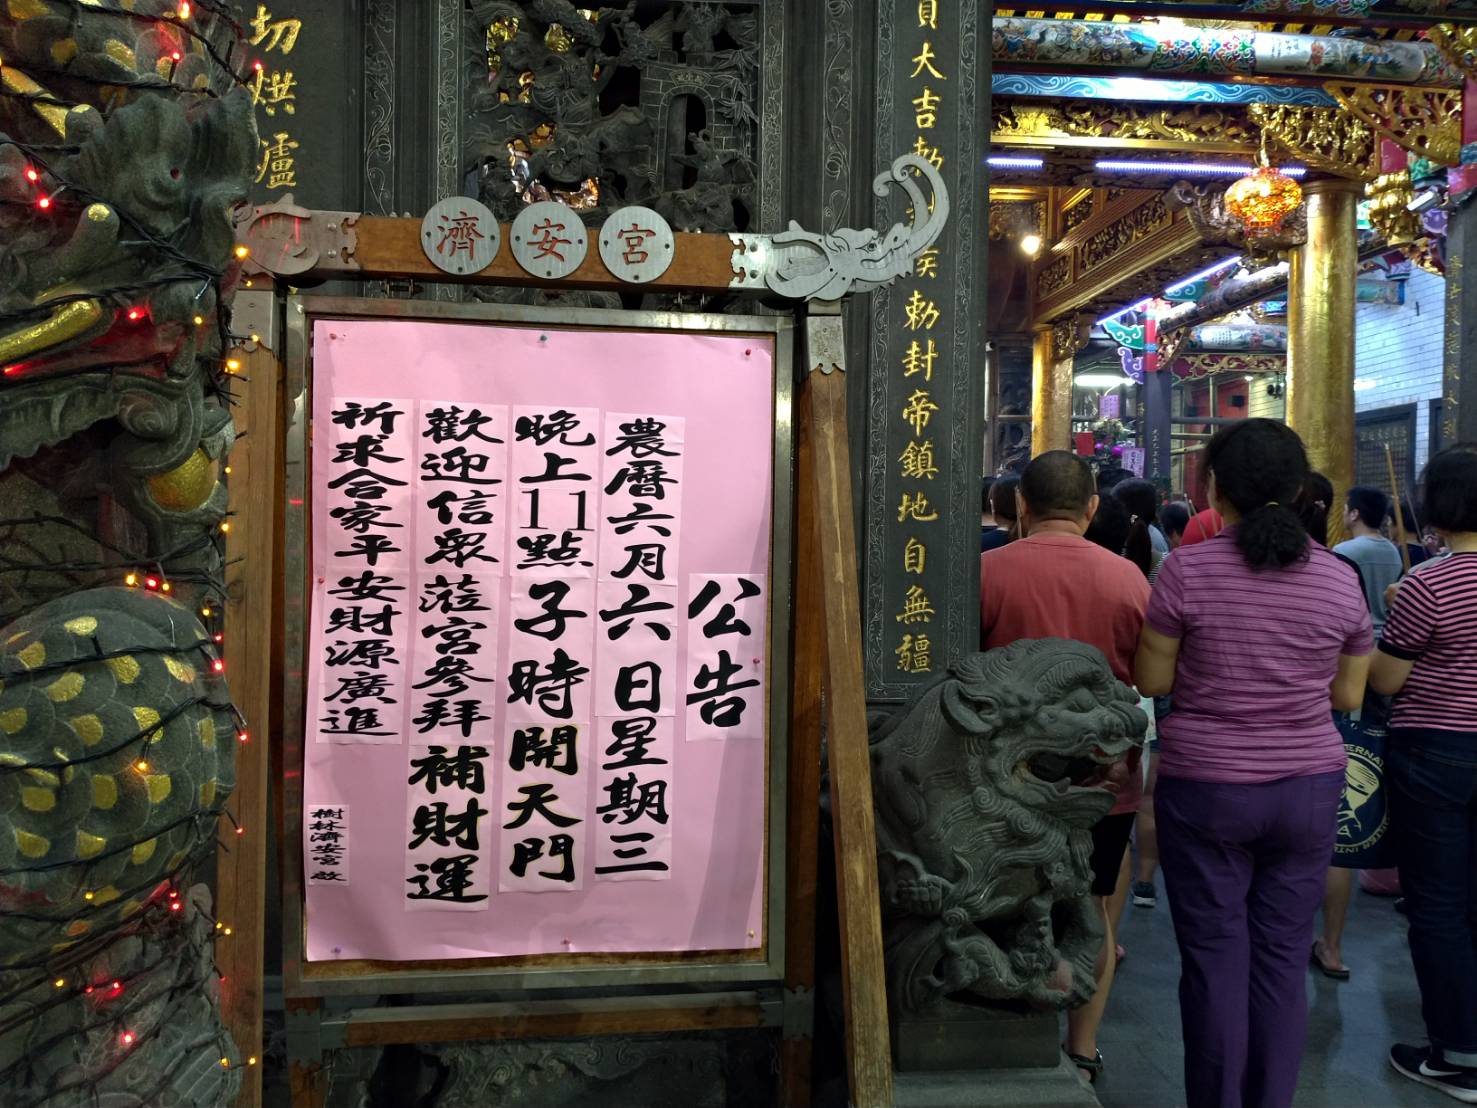 濟安宮
公告
農曆六月六日星期三
晚上11點子時開天門
歡迎信眾蒞宮參拜補財運
祈求合家平安財源廣進
樹林濟安宮 啟
切烘瀘
敕封帝鎮地自無疆
大吉